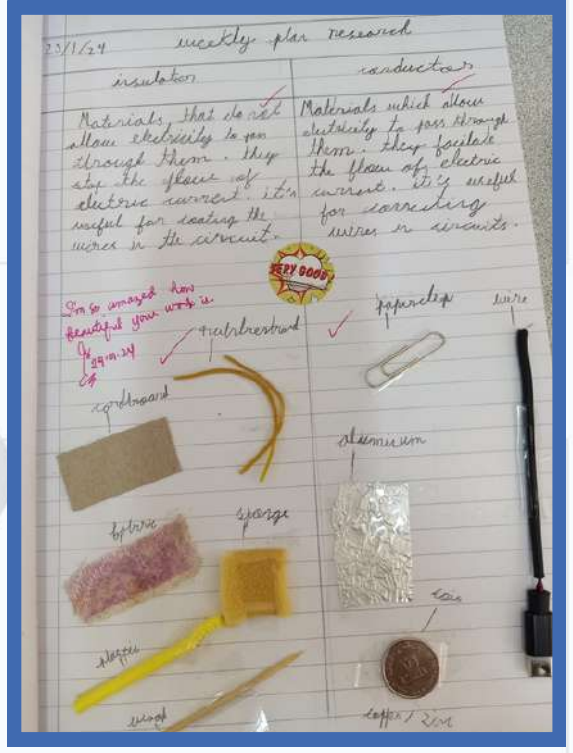 23/1/24
weekly plan research
insulator
Materials that do not
allow electricity to pass
through them. they
stop the flow of
electric current. it's
useful for coating the
wires in the circuit.
conductor
Materials which allow
electricity to pass through
them. they facilate
the flow of electric
current. it's useful
for connecting
wires in circuits.
VERY GOOD
I'm so amazed how
beautiful your work is.
rubberband
cardboard
fabric
sponge
plastic
wood
paperclip
wire
aluminum
coin
copper / zinc